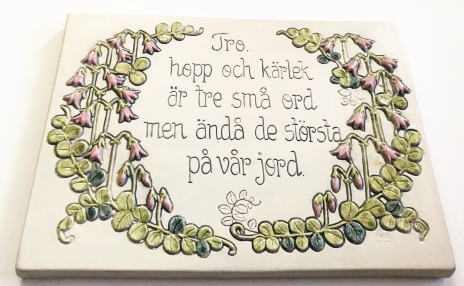 Tro.
hopp och kärlek
är tre små ord
men ändå de största
på vår jord.